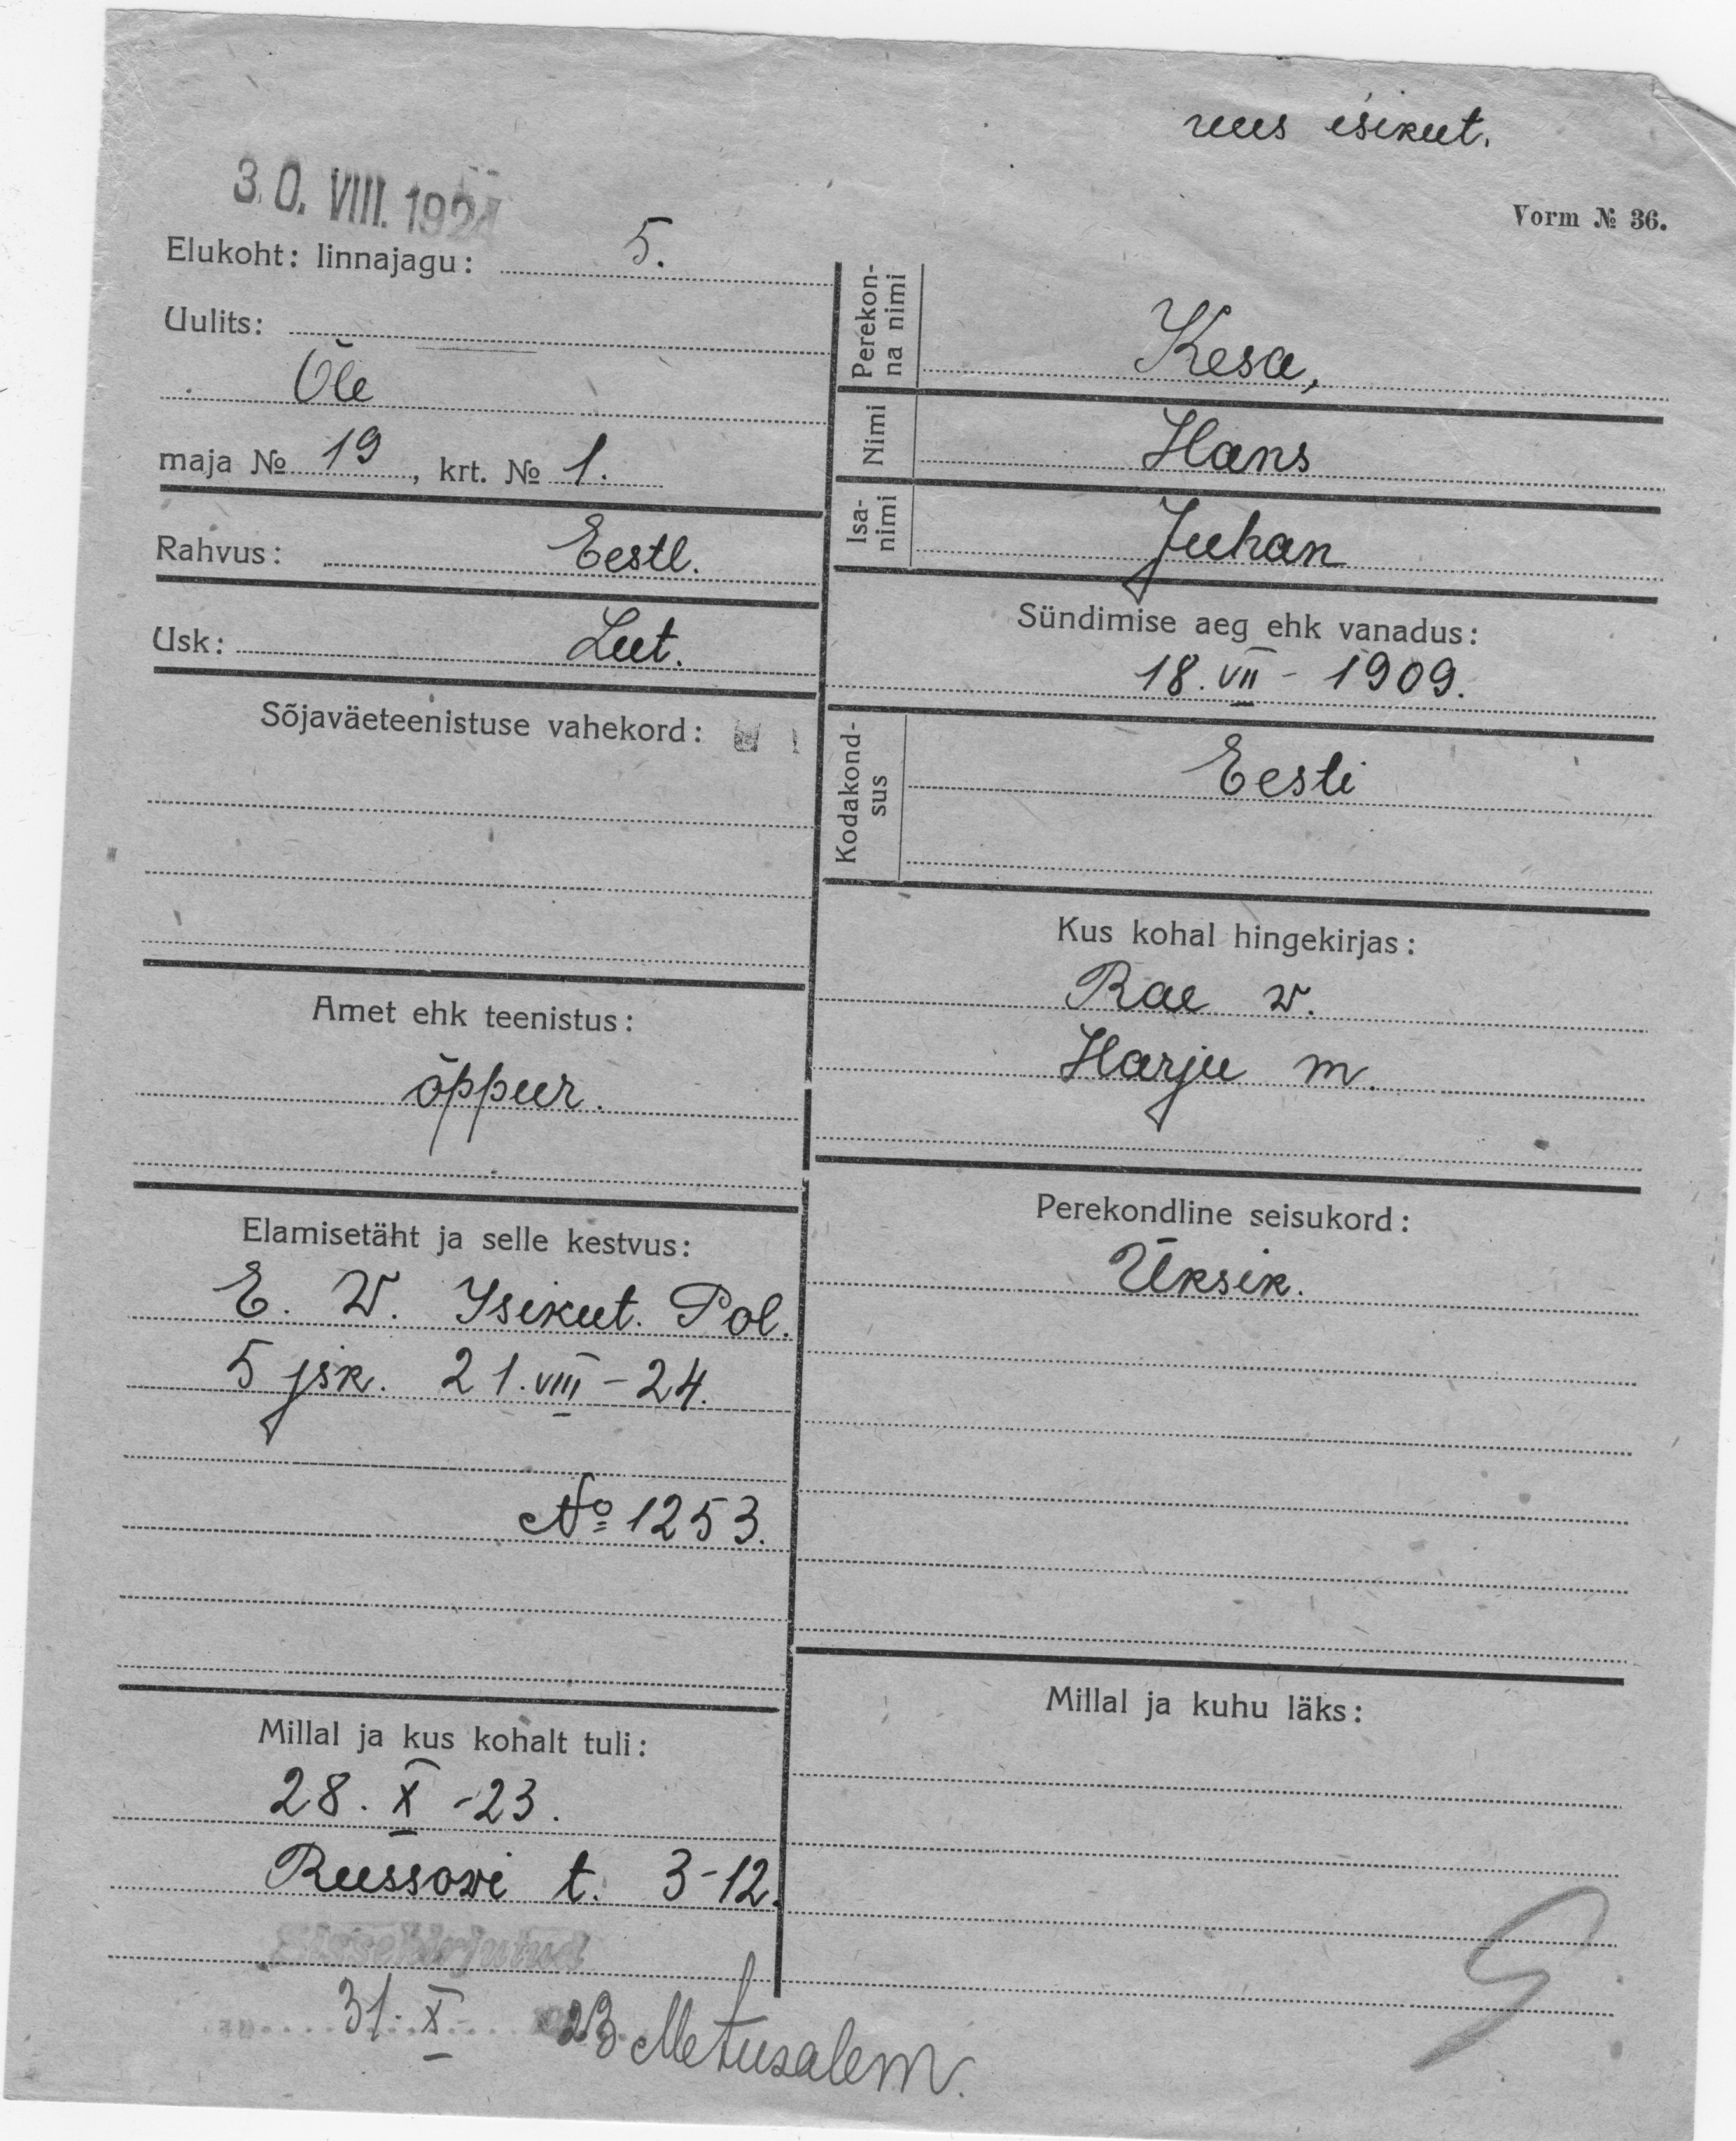 uus isikut.
30. VIII. 1924
Vorm № 36.
Elukoht: linnajagu: 5.
Uulits:
Õle
maja № 19, krt. № 1.
Rahvus: Eestl.
Usk: Lut.
Sõjaväeteenistuse vahekord:
Amet ehk teenistus:
õppur.
Elamisetäht ja selle kestvus:
E. W. Isikut. Pol.
5 jsk. 21. VIII - 24.
№ 1253.
Millal ja kus kohalt tuli:
28. X - 23.
Russowi t. 3-12.
Sissekirjutud
31. X 23 Metusalem.
Perekonna nimi
Kesa,
Nimi
Hans
Isanimi
Juhan
Sündimise aeg ehk vanadus:
18. VII - 1909.
Kodakondsus
Eesti
Kus kohal hingekirjas:
Rae w.
Harju m.
Perekondline seisukord:
Üksik.
Millal ja kuhu läks: